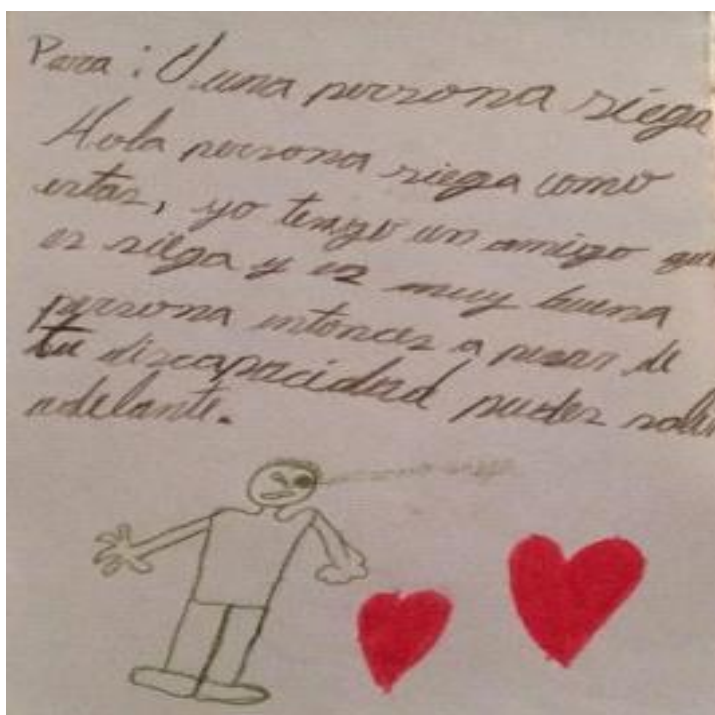 Para : Una persona siega
Hola persona siega como
estas, yo tengo un amigo que
es siega y es muy buena
persona entonces a pesar de
tu discapacidad puedes salir
adelante.